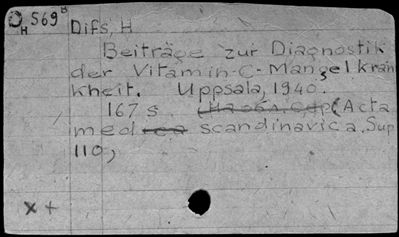 O 569 H
H
Difs, H
Beiträge zur Diagnostik
der Vitamin-C-Mangelkran
kheit. Uppsala, 1940.
167 s (Acta
med scandinavica. Sup
110)
x +